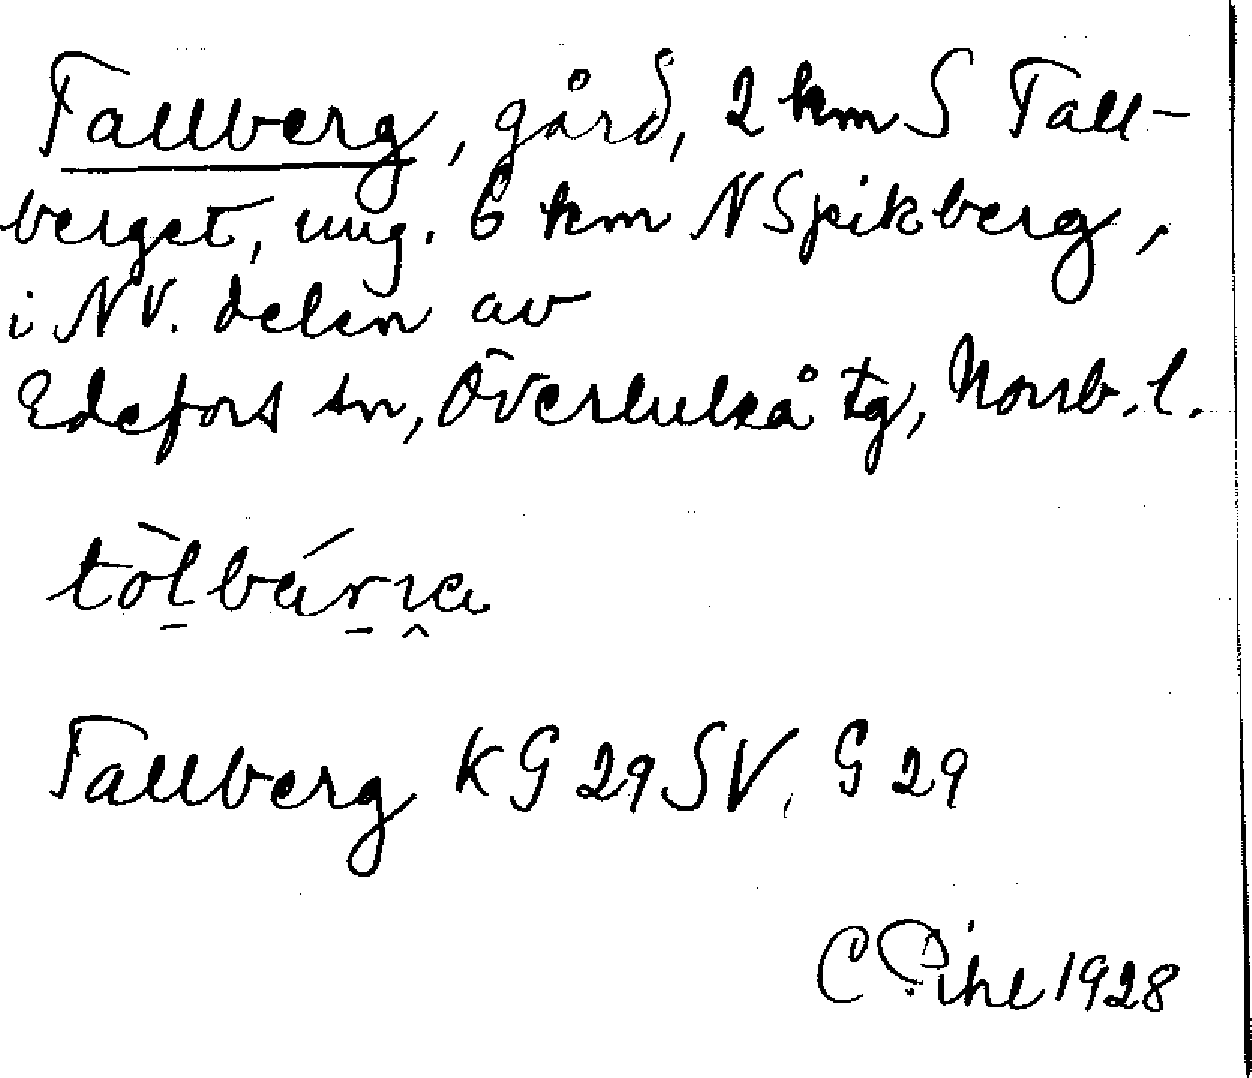 Tallberg, gård, 2 km S Tall-
berget, ung. 6 km N Spikberg,
i NV. delen av
Edefors sn, Överluleå tg, Norrb. l.
tòl̠bár̠ɪ̭a
Tallberg KG 29 SV, G 29
C Pihl 1928